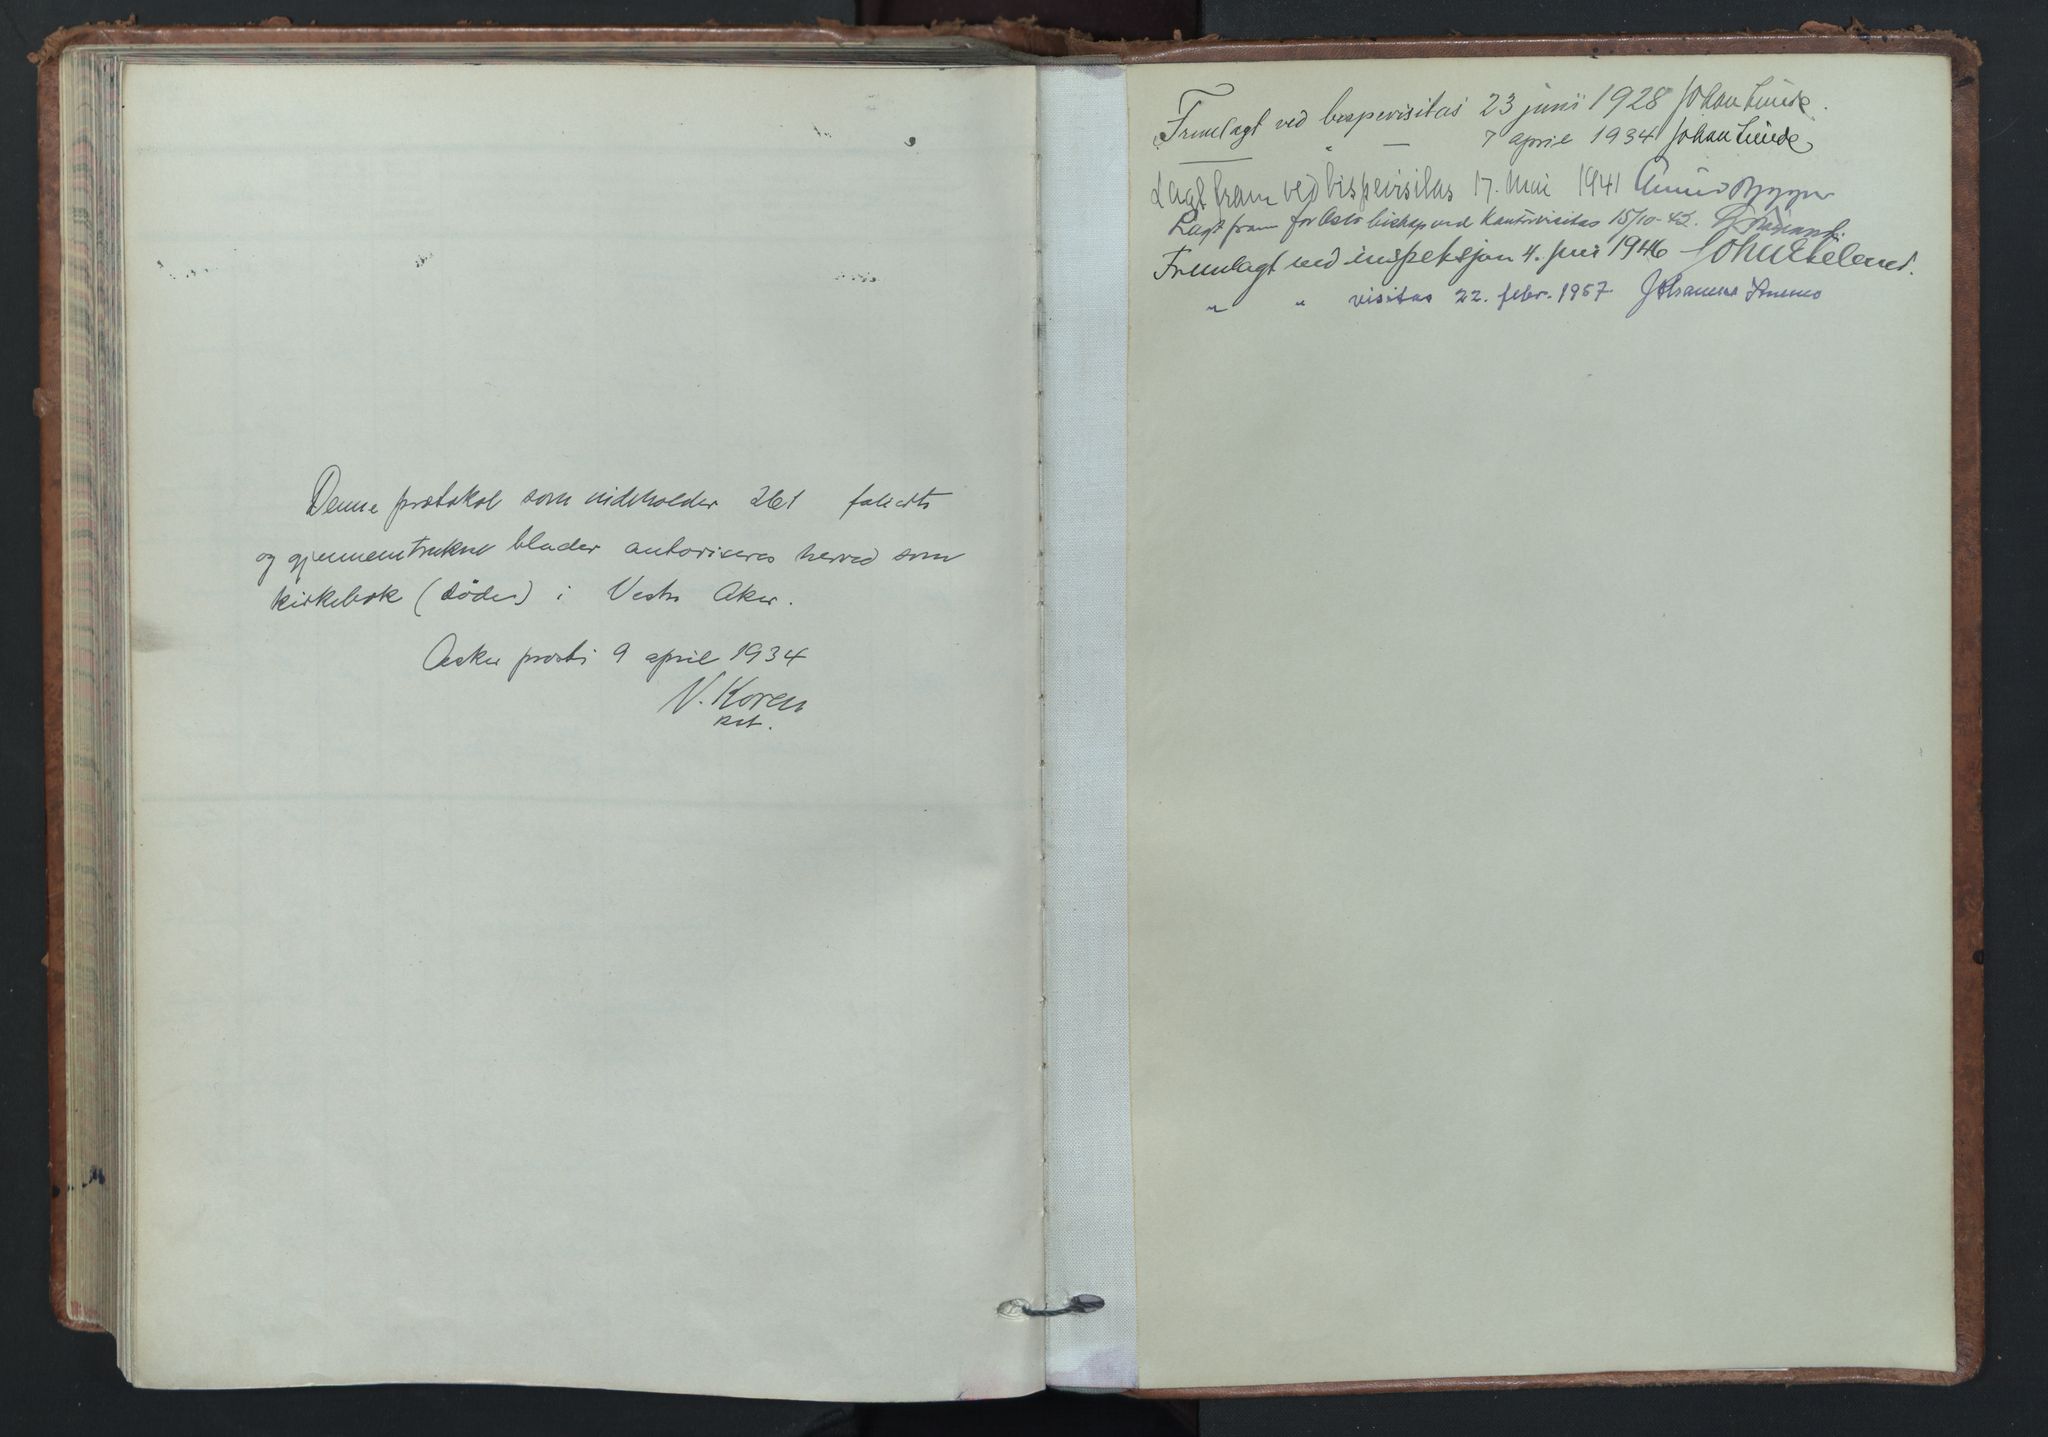 Denne protokol som indeholder 261 folierte
og gjennemtrukne blader autoriseres herved som
kirkebok (døde) i Vestre Aker.
Asker prosti 9 april 1934
V. Koren
kst.
Fremlagt ved bispevisitas 23 juni 1928 Johan Lunde.
" — 7 april 1934 Johan Lunde
Lagt fram ved bispevisitas 17. mai 1941
Lagt fram for Oslo biskop ved Kantorvisitas 15/10-42.
Fremlagt ved inspeksjon 4. juni 1946
" " visitas 22. febr. 1957 Johannes Smemo